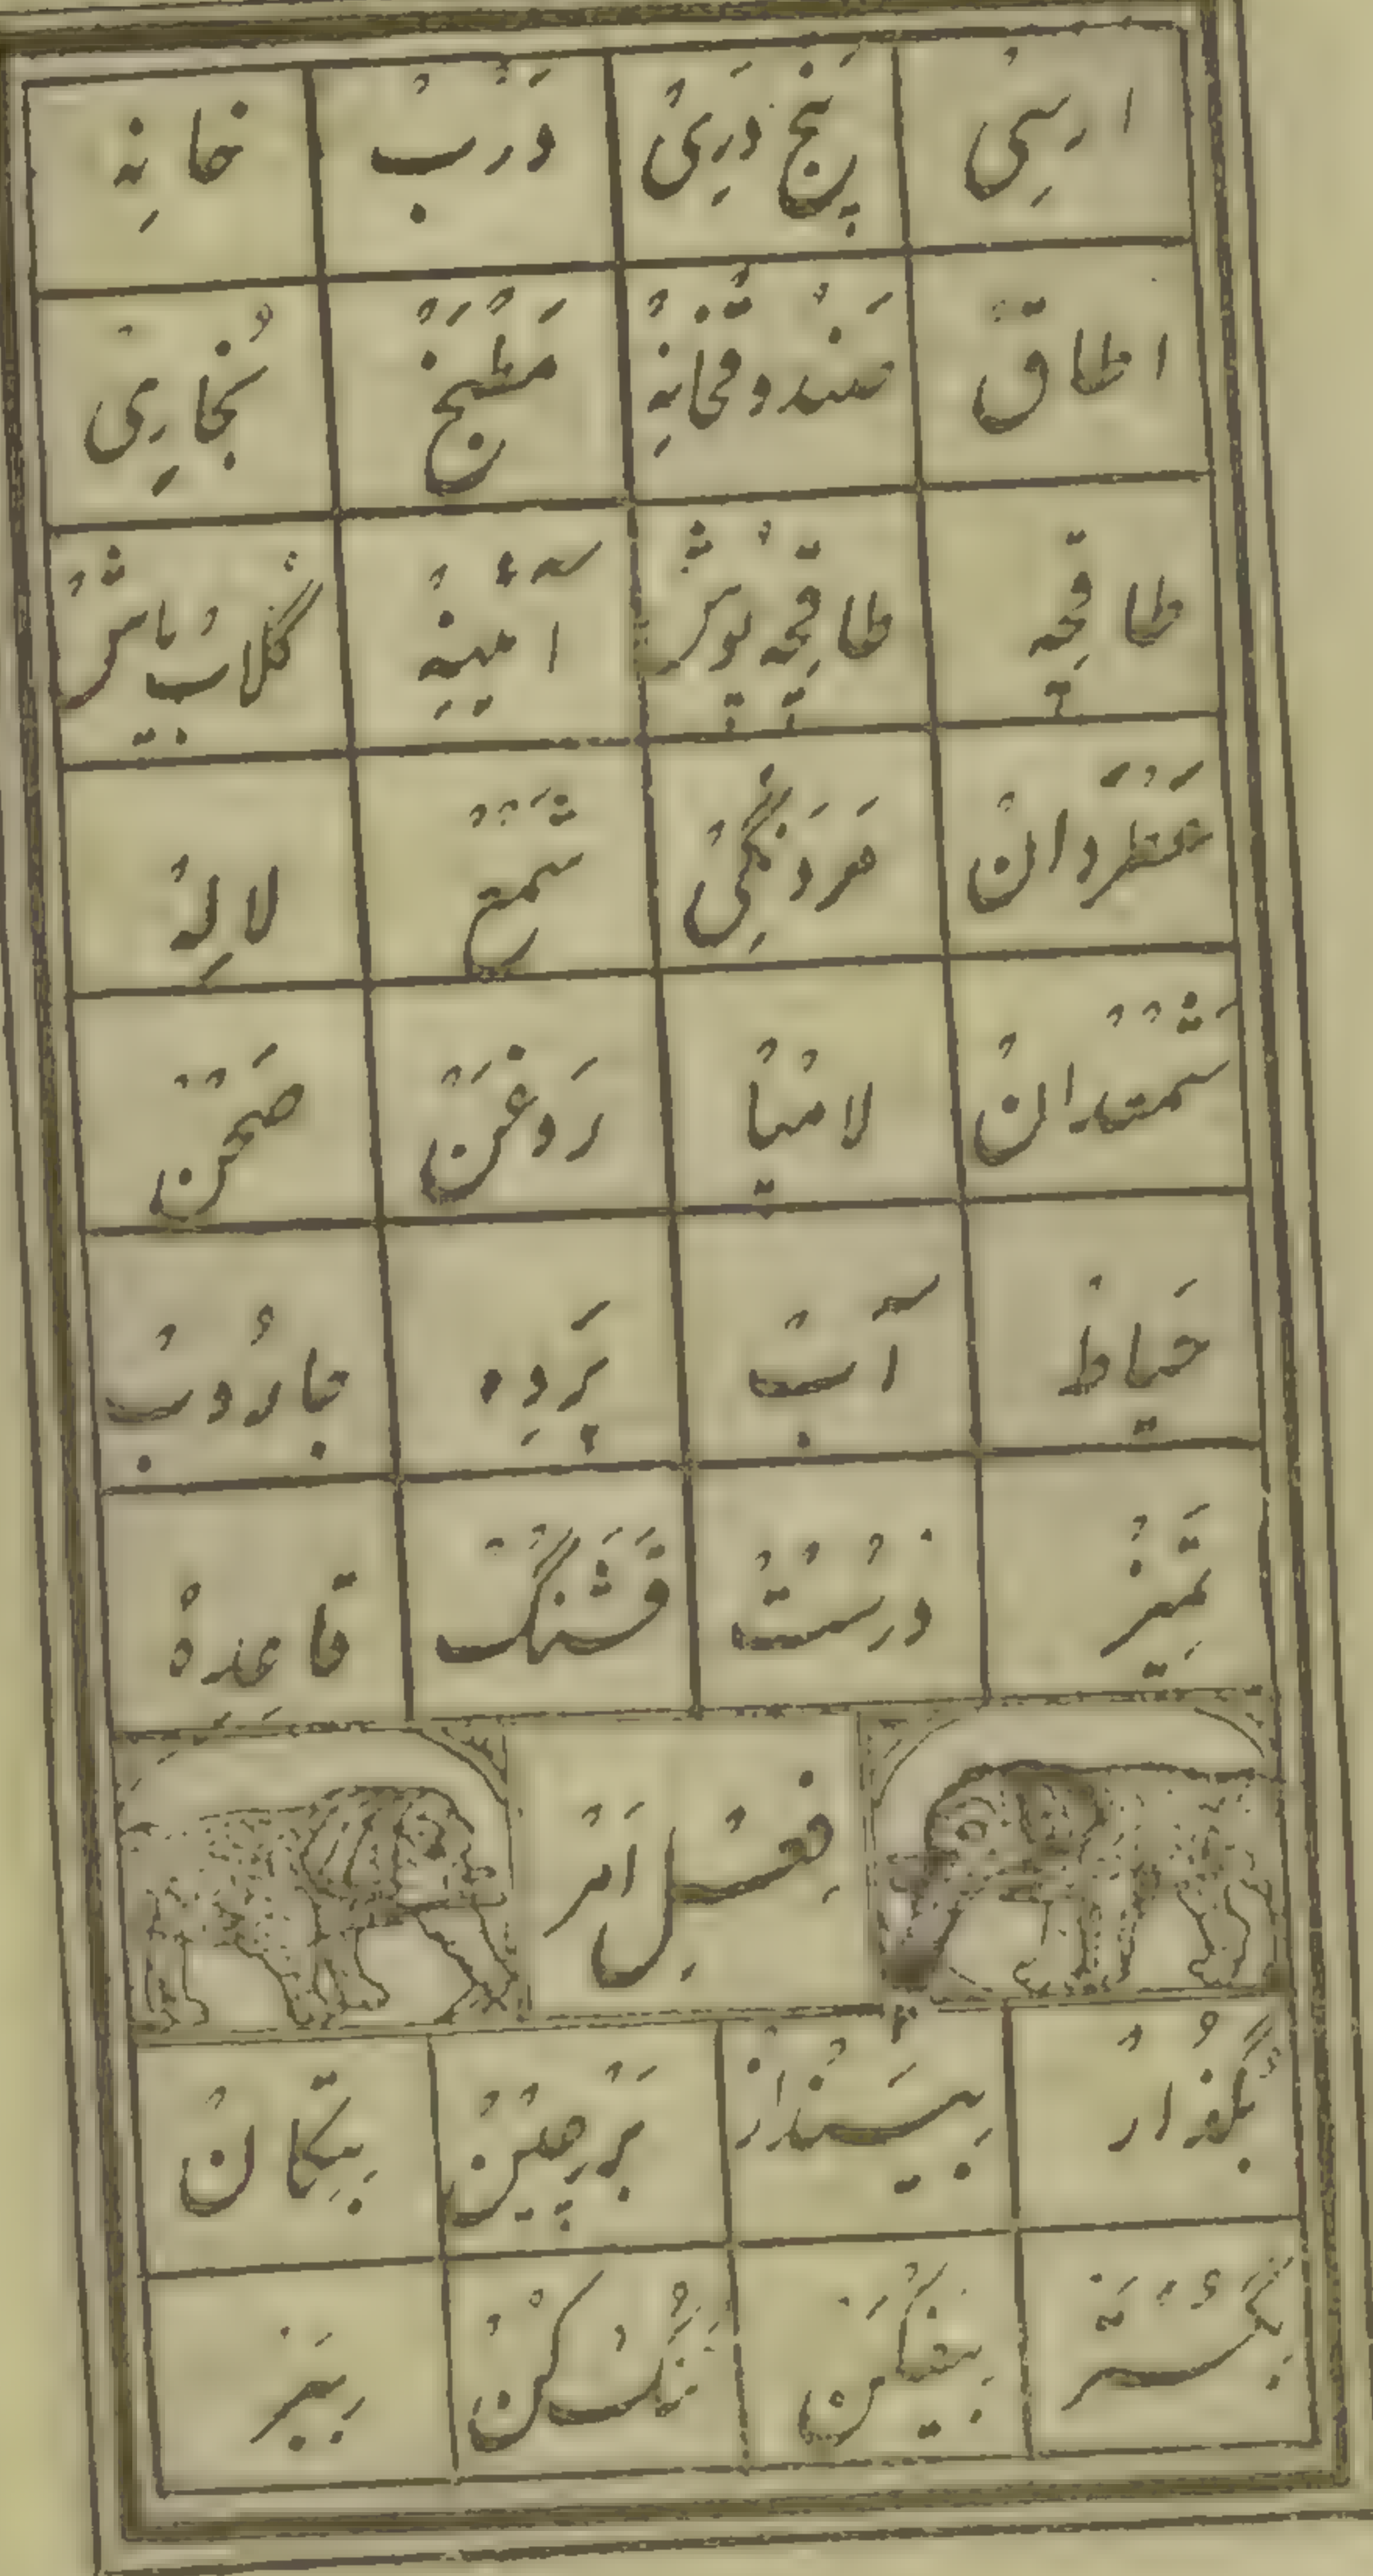 ارسِیْ پَنْجْ دَرِیْ دَرْبْ خانِه
اطاقْ صَنْدوقْخانِهْ مَطْبَخْ بُخارِیْ
طاقْچِه طاقْچِه پوشْ آئینِهْ گُلابْ پاشْ
عَطْرْدانْ مَرْدَنْگِیْ شَمْعْ لالِهْ
شَمْعْدانْ لامْپا رَوْغَنْ صَحْنْ
حَیاطْ آبْ پَرْدِه جارُوبْ
تَمِیزْ دُرُسْتْ قَشَنْگْ قاعِدِهْ
فِعْلِ اَمْرْ
بُگْذارْ بِیَنْدازْ بَرْچِینْ بِتِّکانْ
بِگُسْتَرْ بِیفْکَنْ تُنُکْ کُنْ بِبَرْ